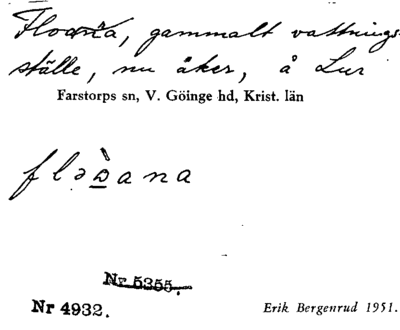 Floarna, gammalt vattnings-
ställe, nu åker, å Lur
Farstorps sn, V. Göinge hd, Krist. län
Nr 5355.
Nr 4932.
Erik Bergenrud 1951.